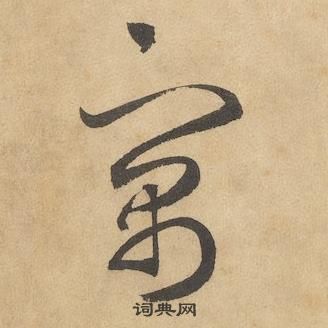 寓
词典网